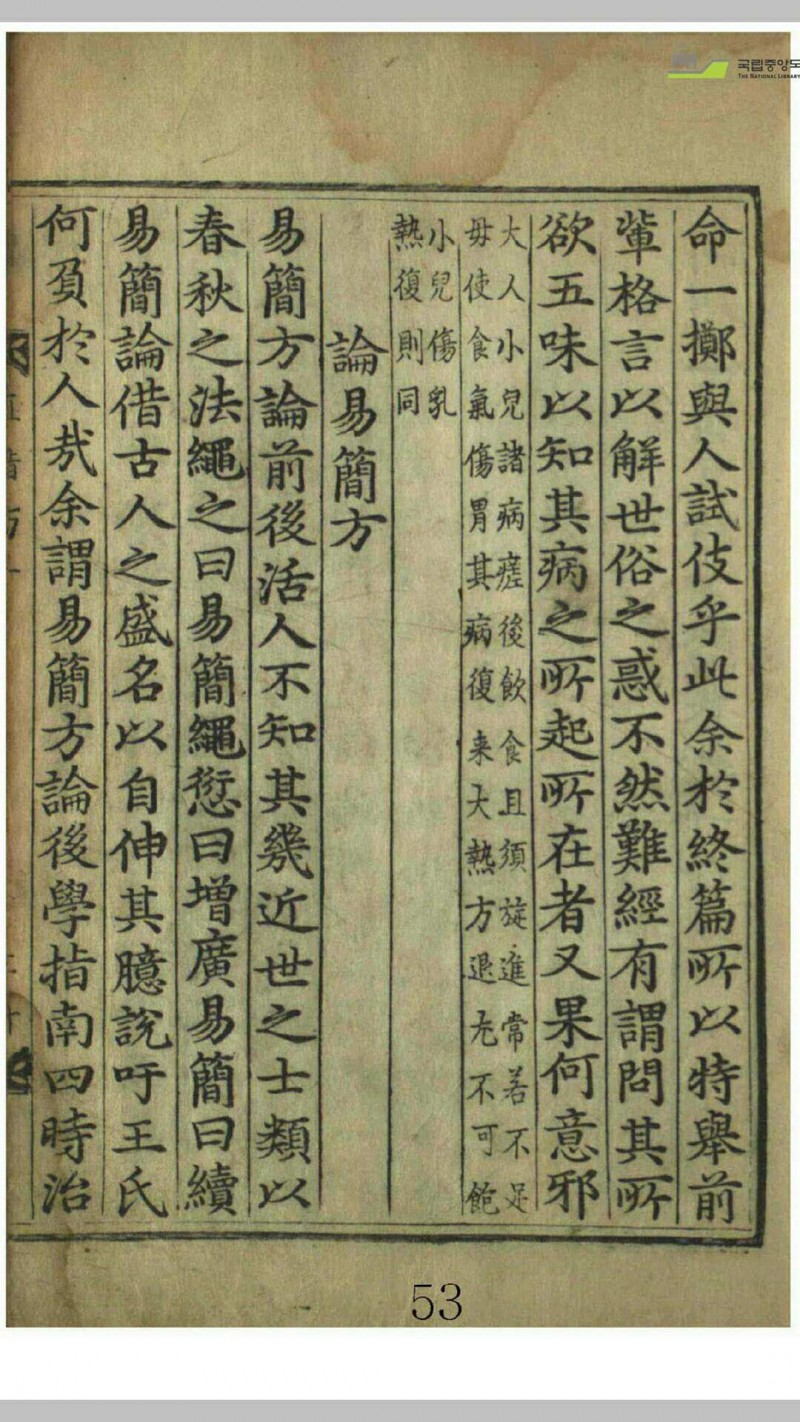 국립중앙도
THE NATIONAL LIBRARY
命一擲與人試伎乎此余於終篇所以特舉前
軰格言以解世俗之惑不然難經有謂問其所
欲五味以知其病之所起所在者又果何意邪
大人小兒諸病瘥後飲食且須旋進常若不足
毋使食氣傷胃其病復来大熱方退尢不可飽
小兒傷乳
熱復則同
論易簡方
易簡方論前後活人不知其幾近世之士類以
春秋之法繩之曰易簡繩愆曰增廣易簡曰續
易簡論借古人之盛名以自伸其臆說吁王氏
何負於人㢤余謂易簡方論後學指南四時治
53